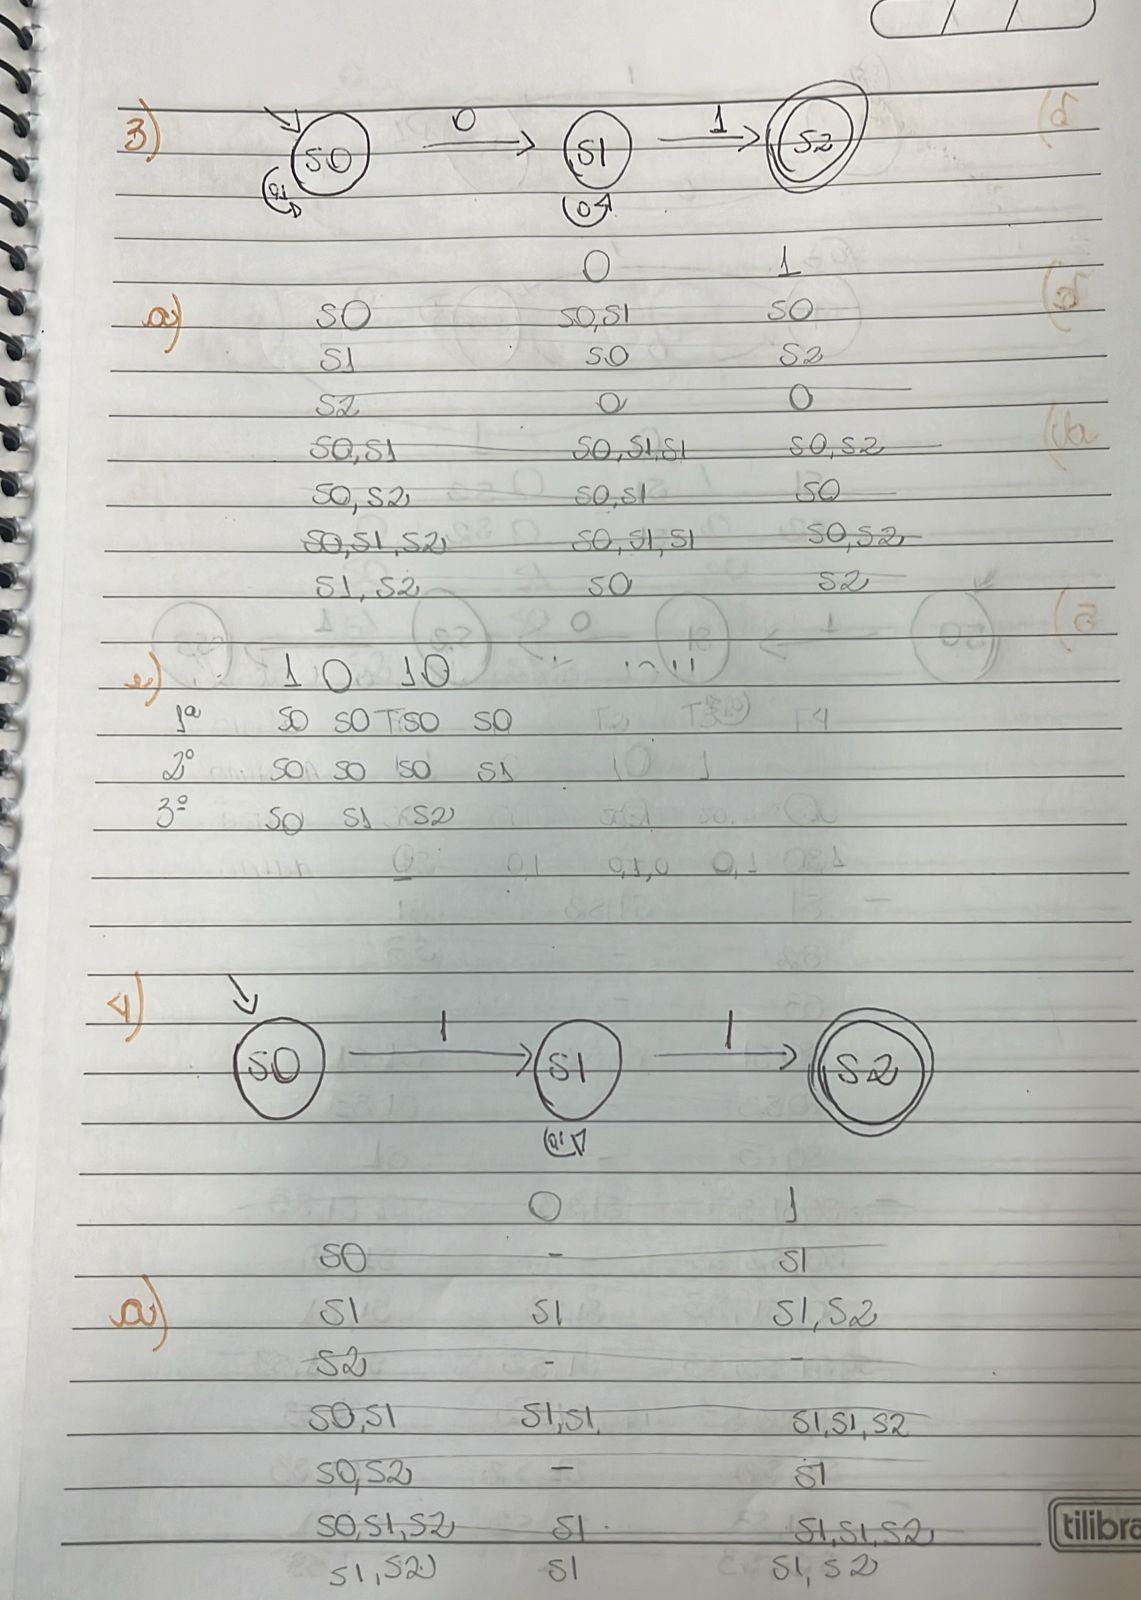 3) S0 0 S1 1 S2
0,1 0
0 1
a) S0 S0,S1 S0
S1 S0 S2
S2 0 0
S0,S1 S0,S1,S1 S0,S2
S0,S2 S0,S1 S0
S0,S1,S2 S0,S1,S1 S0,S2
S1,S2 S0 S2
e) 1 0 10
1ª S0 S0 S0 S0
2º S0 S0 S0 S1
3º S0 S1 S2
4) S0 1 S1 1 S2
0,1
0 1
S0 - S1
a) S1 S1 S1,S2
S2 - -
S0,S1 S1,S1, S1,S1,S2
S0,S2 - S1
S0,S1,S2 S1 S1,S1,S2
S1,S2 S1 S1,S2
tilibra